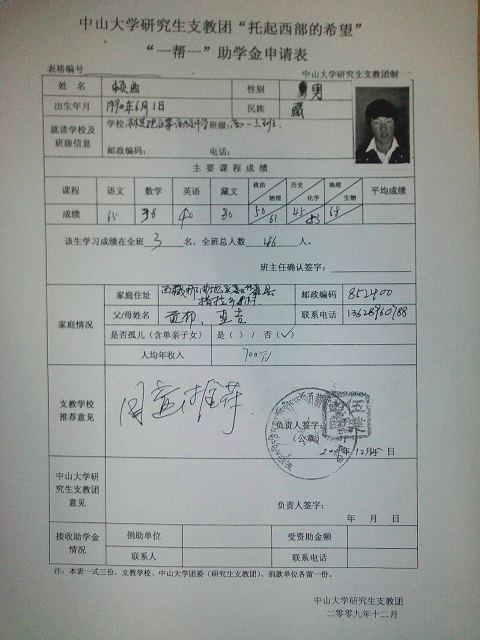 中山大学研究生支教团“托起西部的希望”
“一帮一”助学金申请表
表格编号
中山大学研究生支教团制
姓 名
性别 男
出生年月 1990年6月1日
民族 藏
就读学校及班级信息
学校: 班级:
邮政编码: 电话:
主 要 课 程 成 绩
课程 语文 数学 英语 藏文 政治 物理 历史 化学 地理 生物 平均成绩
成绩 65 40 80 50 61 45 68
该生学习成绩在全班 3 名,全班总人数 46 人。
班主任确认签字:
家庭情况
家庭住址
邮政编码 852400
父/母姓名
联系电话 13628960788
是否孤儿(含单亲子女) 是( ) / 否(✓)
人均年收入 700元
支教学校推荐意见
同意推荐
负责人签字:
(公章)
年 12月 日
中山大学研究生支教团意见
负责人签字:
年 月 日
接收助学金情况
捐助单位 受资助金额
联系人 联系电话
注:本表一式三份,支教学校、中山大学团委(研究生支教团)、捐款单位各留一份。
中山大学研究生支教团
二零零九年十二月